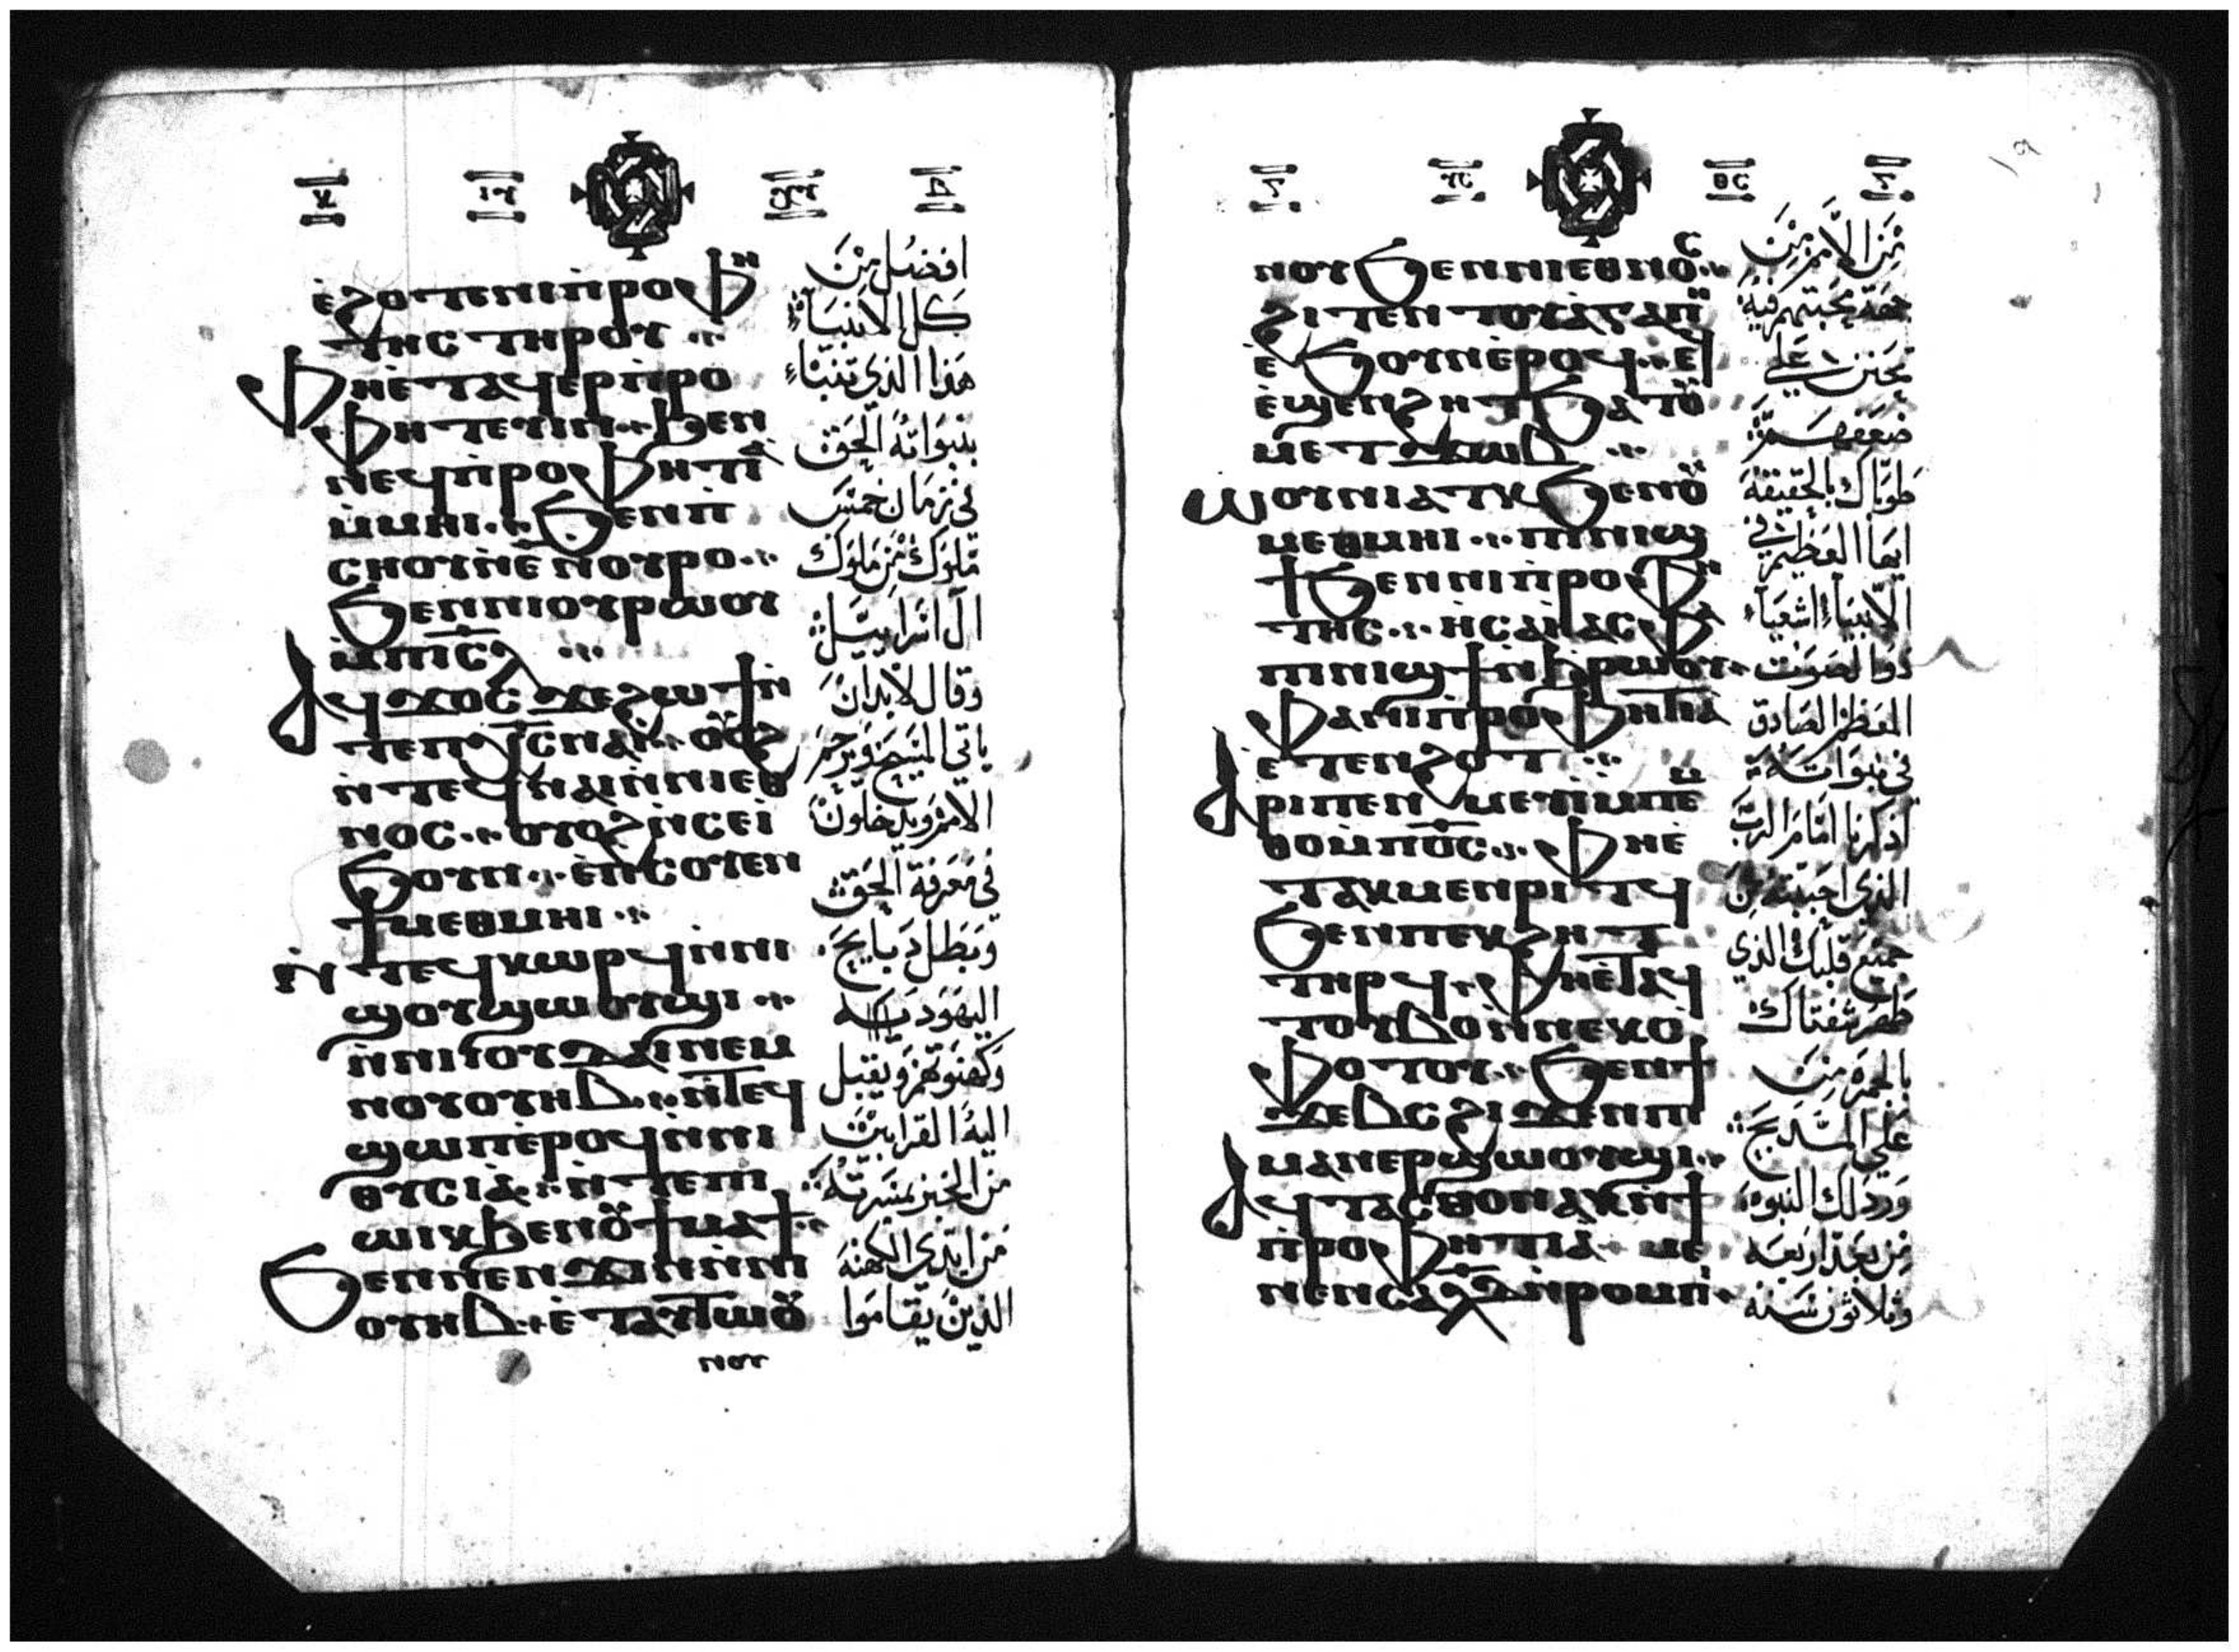 ⲉ̀ϩⲟⲧⲉⲛⲓⲡ̀ⲣⲟⲫⲏ
ⲧⲏⲥ ⲧⲏⲣⲟⲩ
ⲫⲏⲉ̀ⲧⲁϥⲉⲣⲡ̀ⲣⲟ
ⲫⲏⲧⲉⲩⲓⲛ ϧⲉⲛ
ⲛⲉϥⲡ̀ⲣⲟⲫⲏⲧⲓⲁ̀
ⲙ̀ⲙⲏⲓ ϧⲉⲛⲡ̀
ⲥⲏⲟⲩⲛ̀ⲉ̅ ⲛⲟⲩⲣⲟ
ϧⲉⲛⲛⲓⲟⲩⲣⲱⲟⲩ
ⲙ̀ⲡⲓⲥ̅ⲗ
ⲁϥϫⲟⲥ ϫⲉϩⲱϯⲛ̀
ⲧⲉⲡⲭ̅ⲥⲛⲁⲓ̀ ⲟⲩⲟϩ
ⲛ̀ⲧⲉϥⲛⲁⲓⲛ̀ⲛⲓⲉⲑ
ⲛⲟⲥ ⲟⲩⲟϩⲛ̀ⲥⲉⲓ̀
ϧⲟⲩⲛ ⲉ̀ⲡⲥⲟⲩⲉⲛ
ϯⲙⲉⲑⲙⲏⲓ
ⲛ̀ⲧⲉϥⲕⲱⲣϥⲛ̀ⲛⲓ
ϣⲟⲩϣⲱⲟⲩϣⲓ
ⲛ̀ⲛⲓⲓⲟⲩⲇⲁⲓⲛⲉⲙ
ⲛⲟⲩⲟⲩⲏⲃ ⲛ̀ⲧⲉϥ
ϣⲱⲡⲉ̀ⲣⲟϥⲛ̀ⲛⲓ
ⲑⲩⲥⲓⲁ̀ ⲛ̀ⲧⲉⲡⲓ
ⲱⲓⲕϧⲉⲛⲟⲩϯⲙⲁϯ
ϧⲉⲛⲛⲉⲛϫⲓϫⲛ̀ⲛⲓ
ⲟⲩⲏⲃ ⲉ̀ⲧⲁⲩⲧⲱⲟⲩ
ⲛⲟⲩ
افضل من
كل الانبياء
هذا الذى تنباء
بنبواته الحق
فى زمان خمس
ملوك من ملوك
آل اسراييل
وقال لابد ان
ياتى المسيح ويرحم
الامم ويدخلون
فى معرفة الحق
وتبطل دبايح
اليهوديه
وكهنوتهم ويقبل
اليه القرابين
من الخبز بمسرته
من ايدى الكهنه
الذين يقاموا
ⲛⲟⲩϧⲉⲛⲛⲓⲉⲑⲛⲟⲥ
ϩⲓⲧⲉⲛ ⲧⲟⲩⲁ̀ⲅⲁⲡⲏ
ⲉ̀ϧⲟⲩⲛⲉ̀ⲣⲟϥ ⲉ̀
ⲉ̀ϣⲉⲛϩⲏⲧ ϧⲁⲧⲟⲩ
ⲙⲉⲧϫⲱⲃ
ⲱⲟⲩⲛⲓⲁⲧⲕ ϧⲉⲛⲟⲩ
ⲙⲉⲑⲙⲏⲓ ⲡⲓⲛⲓϣ
ϯϧⲉⲛⲛⲓⲡ̀ⲣⲟⲫⲏ
ⲧⲏⲥ ⲏⲥⲁⲏ̀ⲁⲥ ⲫⲁ
ⲡⲓⲛⲓϣϯⲛ̀ϧ̀ⲣⲱⲟⲩ
ⲫⲁⲛⲓⲡ̀ⲣⲟⲫⲏⲧⲓⲁ̀
ⲉ̀ⲧⲉⲛϩⲟⲧ
ⲁⲣⲓⲡⲉⲛⲙⲉⲩⲓ̀ⲙ̀ⲡⲉⲙ̀
ⲑⲟⲙ̀ⲡⲟ̅ⲥ ⲫⲏⲉ̀
ⲧⲁⲕⲙⲉⲛⲣⲓⲧϥ
ϧⲉⲛⲡⲉⲕϩⲏⲧ
ⲧⲏⲣϥ ⲫⲏⲉ̀ⲧⲁϥ
ⲧⲟⲩⲃⲟⲛ̀ⲛⲉⲕⲥ̀
ⲫⲟⲧⲟⲩ ϧⲉⲛϯ
ϫⲉⲃⲥ ϩⲓϫⲉⲛⲡⲓ
ⲙⲁⲛⲉⲣϣⲱⲟⲩϣⲓ
ⲁϥⲧⲁⲥⲑⲟⲛⲁⲕⲛ̀ϯ
ⲡ̀ⲣⲟⲫⲏⲧⲓⲁ̀ ⲙⲉ
ⲛⲉⲛⲥⲁⲗ̅ⲇ̅ⲛ̀ⲣⲟⲙⲡⲓ
من الامم من
جهة محبتهم فيه
تحنن على
ضعفهم
طوباك بالحقيقة
ايها العظيم فى
الانبياء اشعياء
ذو الصوت
العظيم الصادق
فى نبواته
اذكرنا امام الرب
الذى احببته من
جميع قلبك الذى
طهر شفتاك
بالجمره من
على المذبح
ورد لك النبوه
من بعد اربعه
وثلاثون سنه